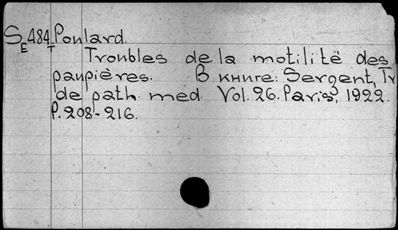 SE 484 T Poulard.
Troubles de la motilité des
paupières. В книге: Sergent, Tr
de path. med. Vol. 26. Paris, 1922.
P. 208-216.